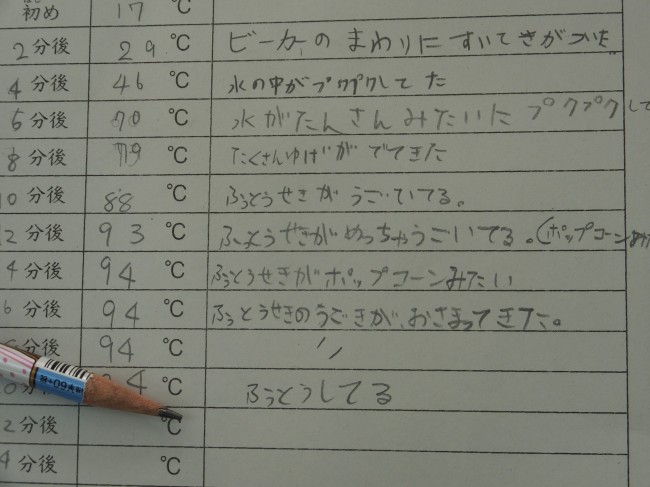 初め 17 ℃
2分後 29 ℃ ビーカーのまわりにすいてきがついた
4分後 46 ℃ 水の中がプクプクしてた
6分後 70 ℃ 水がたんさんみたいにプクプクして
8分後 79 ℃ たくさんゆげがでてきた
10分後 88 ℃ ふっとうせきがうごいてる。
2分後 93 ℃ ふっとうせきがめっちゃうごいてる。(ポップコーン
4分後 94 ℃ ふっとうせきがポップコーンみたい
6分後 94 ℃ ふっとうせきのうごきが、おさまってきた。
8分後 94 ℃ 〃
0分後 94 ℃ ふっとうしてる
2分後 ℃
4分後 ℃